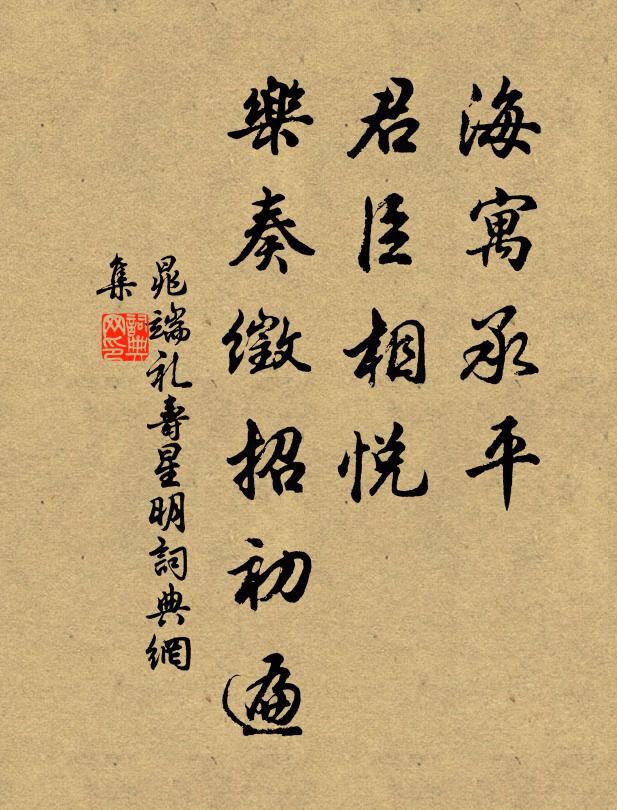 海寓承平
君臣相悅
樂奏徵招初遍
晁端礼壽星明詞典網
集
詞典
网印